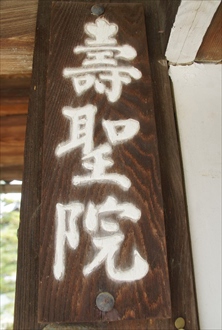 壽聖院